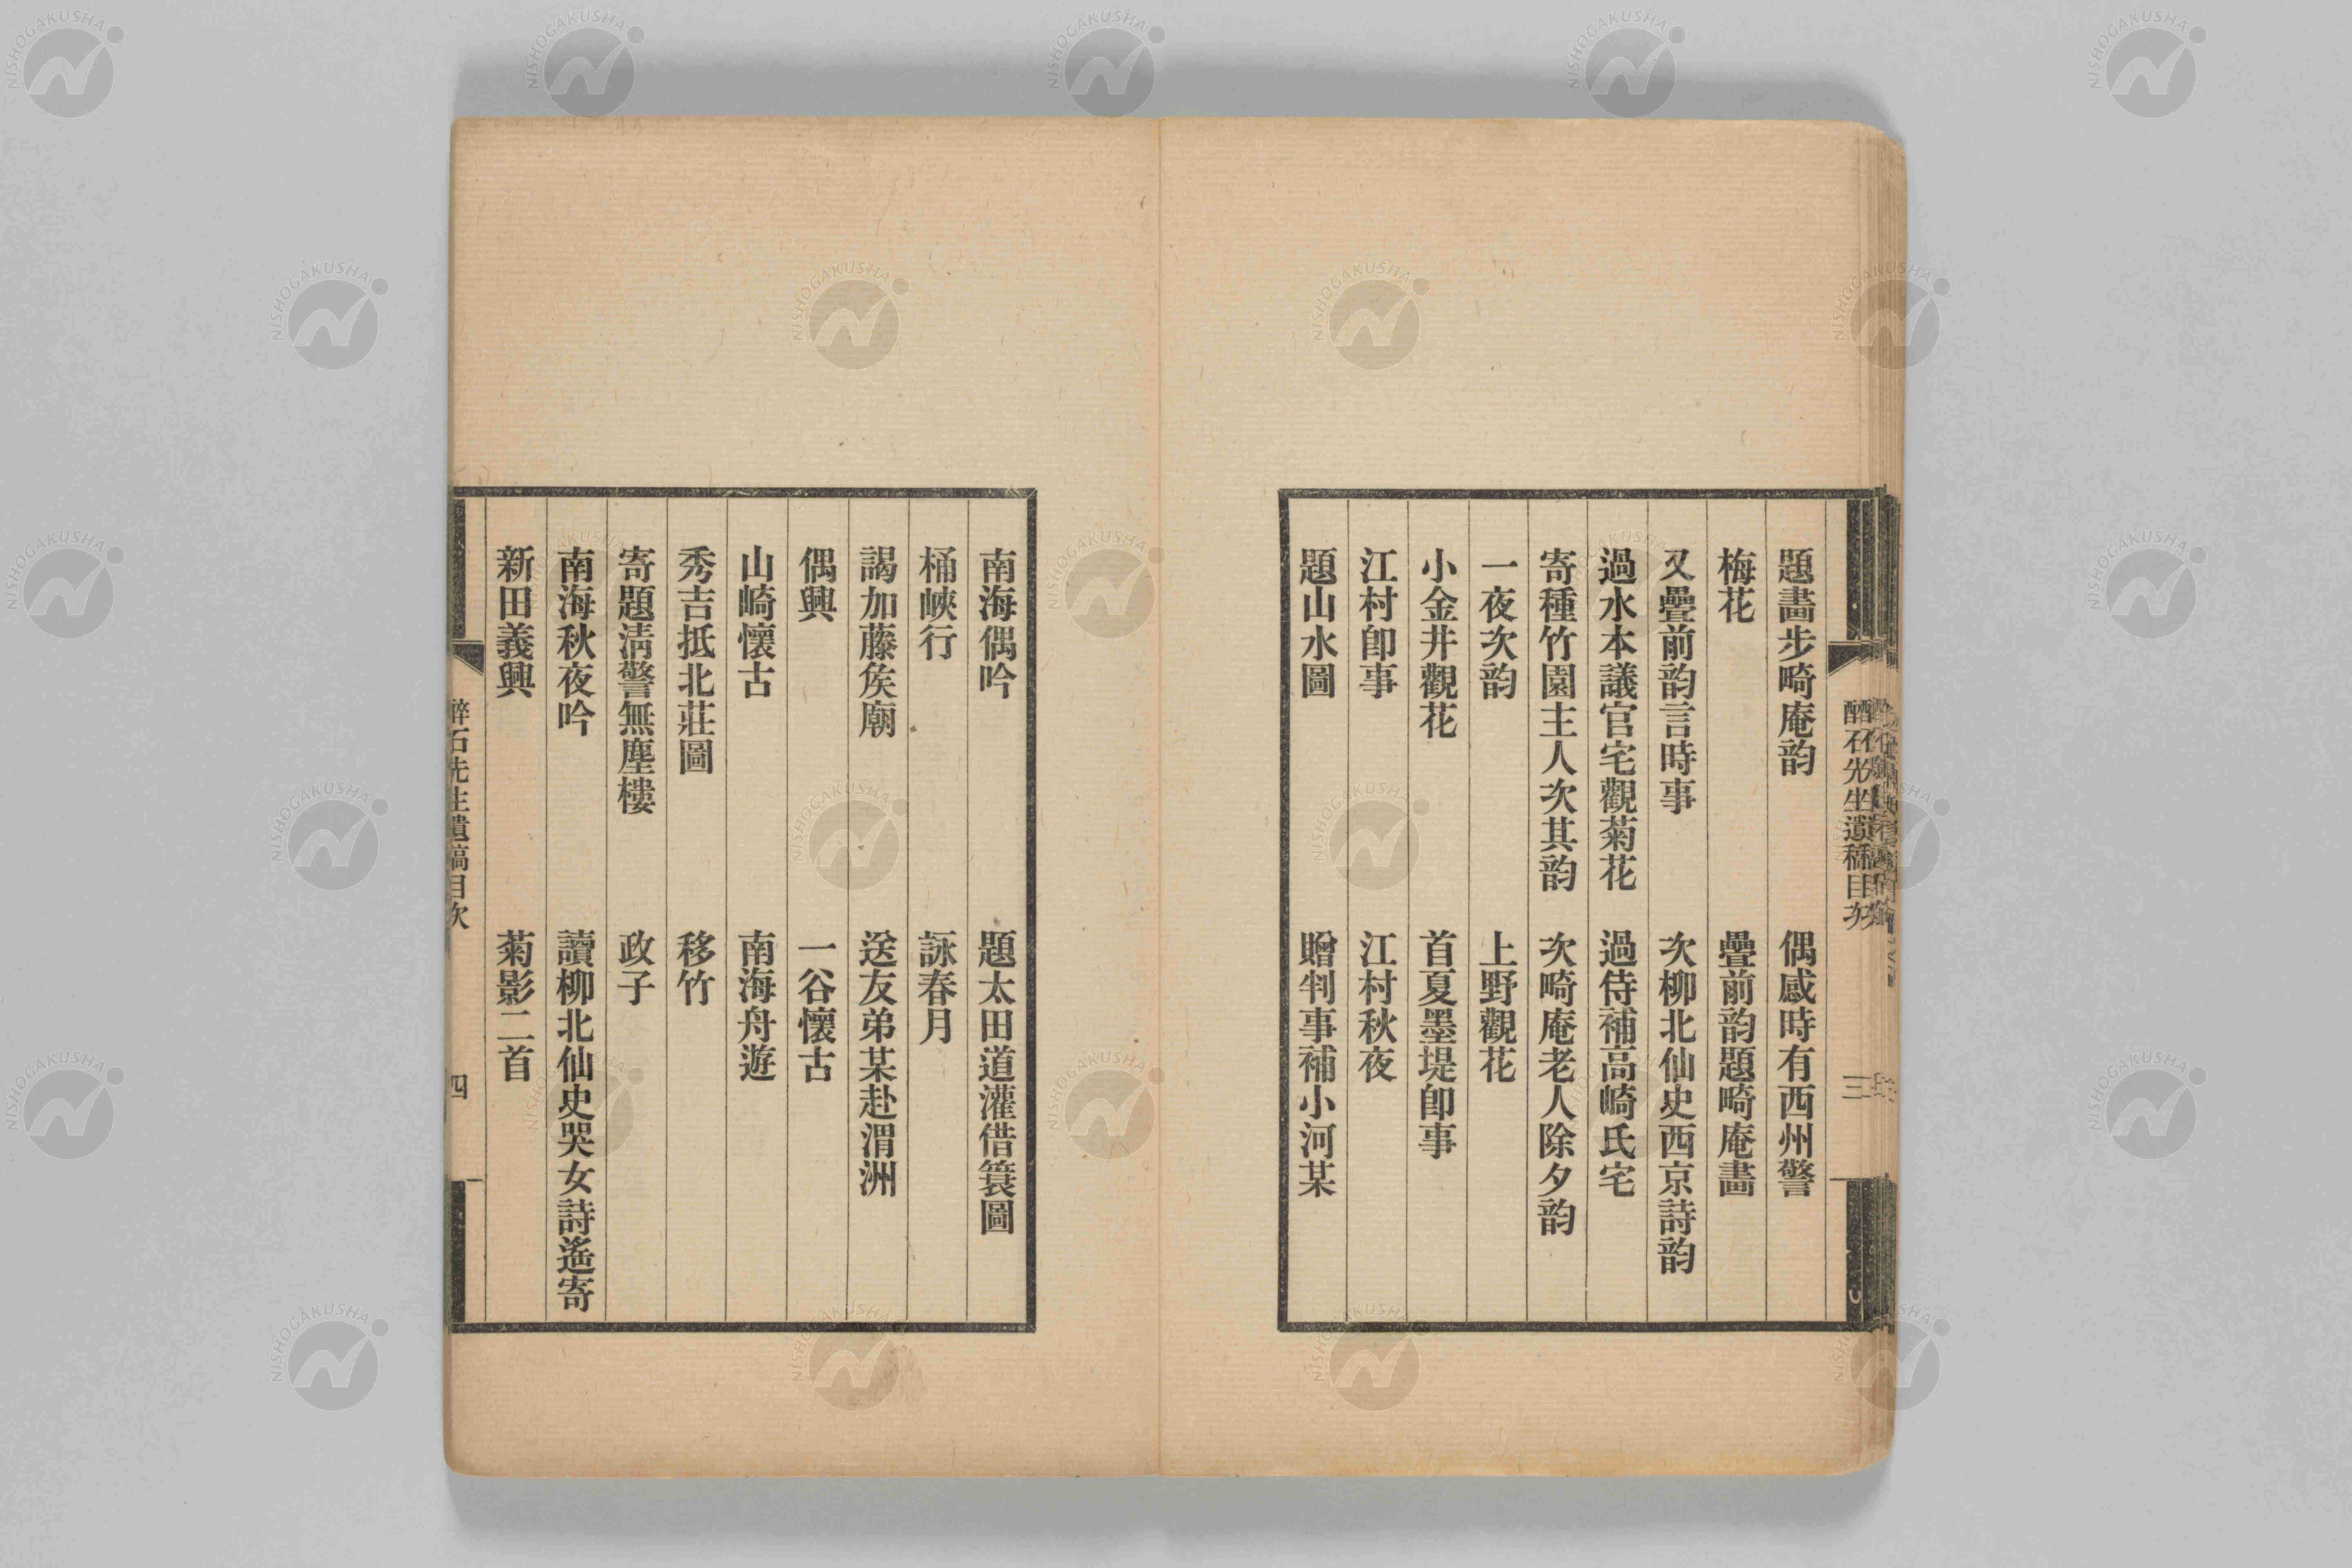 題畵步畸庵韵　偶感時有西州警
梅花　疊前韵題畸庵畵
又疊前韵言時事　次柳北仙史西京詩韵
過水本議官宅觀菊花　過侍補高崎氏宅
寄種竹園主人次其韵　次畸庵老人除夕韵
一夜次韵　上野觀花
小金井觀花　首夏墨堤卽事
江村卽事　江村秋夜
題山水圖　贈判事補小河某
南海偶吟　題太田道灌借簑圖
桶峽行　詠春月
謁加藤矦廟　送友弟某赴渭洲
偶興　一谷懷古
山崎懷古　南海舟遊
秀吉抵北莊圖　移竹
寄題淸警無塵樓　政子
南海秋夜吟　讀柳北仙史哭女詩遙寄
新田義興　菊影二首
醉石先生遺稿目次　四
NISHOGAKUSHA